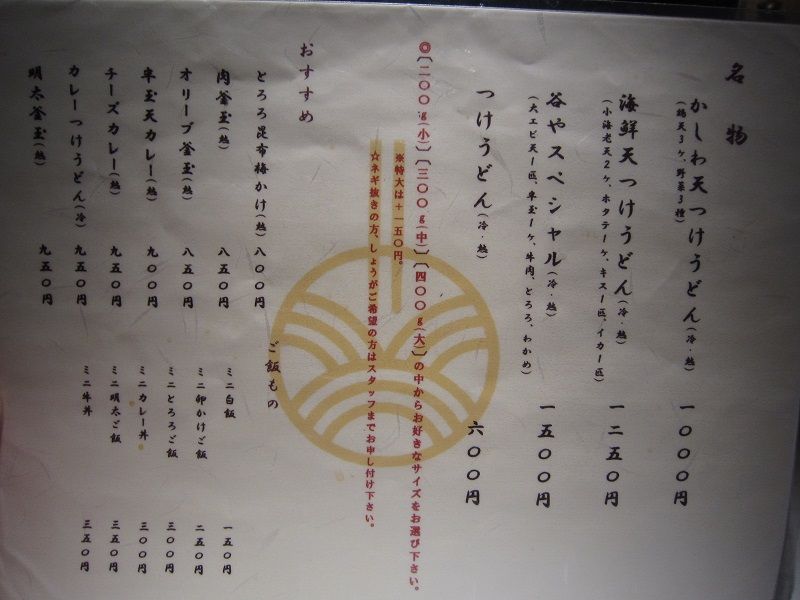 名物
かしわ天つけうどん(冷・熱) 一〇〇〇円
(鶏天3ヶ、野菜3種)
海鮮天つけうどん(冷・熱) 一二五〇円
(小海老天2ヶ、ホタテ一ヶ、キス一匹、イカ一匹)
谷やスペシャル(冷・熱) 一五〇〇円
(大エビ天一匹、半玉1ヶ、牛肉、とろろ、わかめ)
つけうどん(冷・熱) 六〇〇円
◎〔二〇〇g(小)〕〔三〇〇g(中)〕〔四〇〇g(大)〕の中からお好きなサイズをお選び下さい。
※特大は+一五〇円。
☆ネギ抜きの方、しょうがご希望の方はスタッフまでお申し付け下さい。
おすすめ
とろろ昆布梅かけ(熱) 八〇〇円
肉釜玉(熱) 八五〇円
オリーブ釜玉(熱) 八五〇円
半玉天カレー(熱) 九〇〇円
チーズカレー(熱) 九五〇円
カレーつけうどん(冷) 九五〇円
明太釜玉(熱) 九五〇円
ご飯もの
ミニ白飯 一五〇円
ミニ卵かけご飯 二五〇円
ミニとろろご飯 三〇〇円
ミニカレー丼 三〇〇円
ミニ明太ご飯 三五〇円
ミニ牛丼 三五〇円